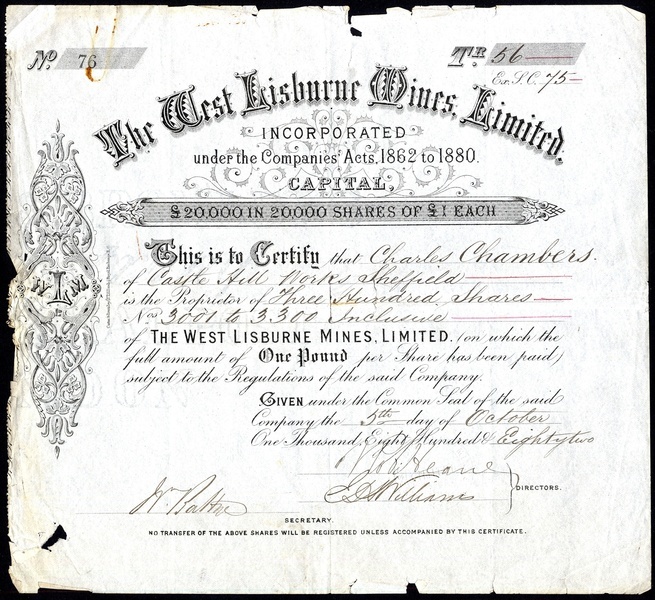 No. 76
TR 56
Ex. S.C. 75
The West Lisburne Mines, Limited.
INCORPORATED
under the Companies' Acts, 1862 to 1880.
CAPITAL,
£20,000 IN 20,000 SHARES OF £1 EACH
This is to Certify that Charles Chambers.
of Castle Hill Works Sheffield
is the Proprietor of Three Hundred Shares
Nos 3001 to 3300 Inclusive
of THE WEST LISBURNE MINES, LIMITED. (on which the
full amount of One Pound per Share has been paid)
subject to the Regulations of the said Company.
GIVEN under the Common Seal of the said
Company the 5th day of October
One Thousand Eight Hundred & Eighty two
Williams
DIRECTORS.
SECRETARY.
NO TRANSFER OF THE ABOVE SHARES WILL BE REGISTERED UNLESS ACCOMPANIED BY THIS CERTIFICATE.
W L M